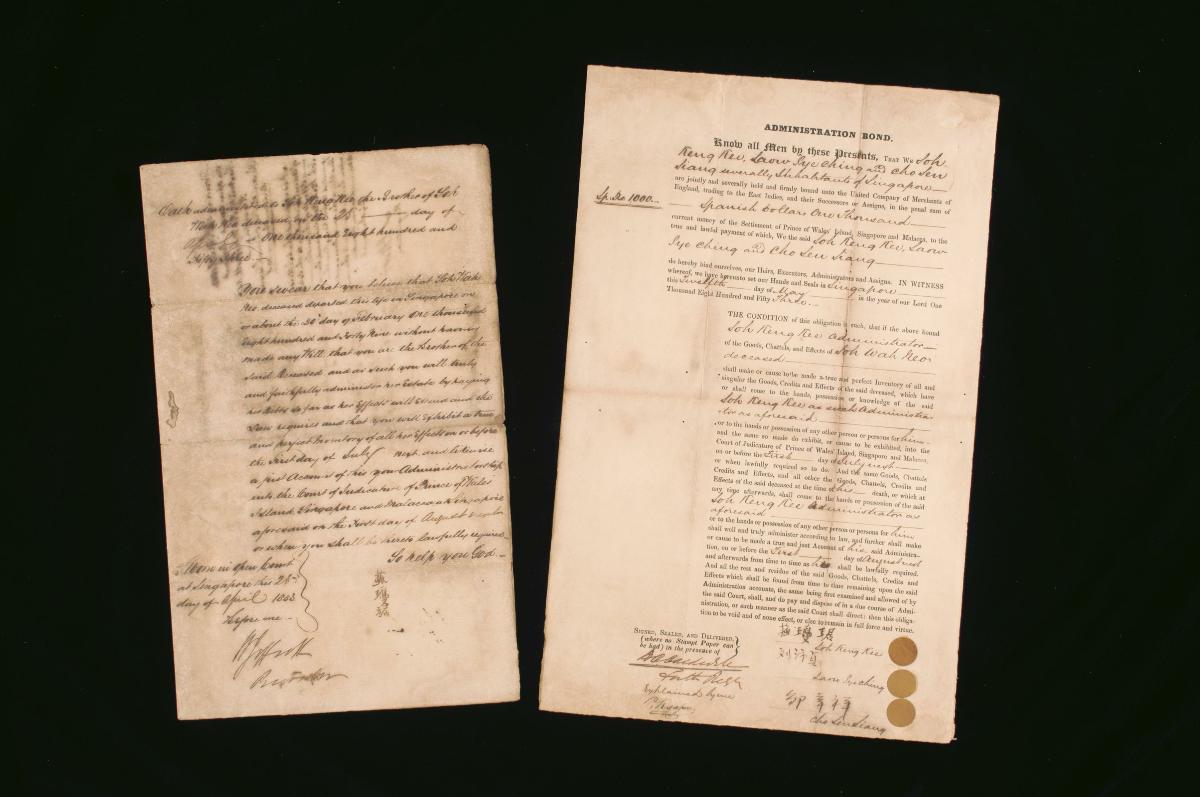 Oath administered to Soh Keng Kee the Brother of Soh
Wah Neo deceased on the 25 day of
April One thousand Eight hundred and
Fifty Three.
You swear that you believe that Soh Wah
Neo deceased departed this life in Singapore on
or about the 20th day of February One thousand
Eight hundred and Forty Nine without having
made any Will that you are the Brother of the
said deceased and as such you will truly
and faithfully administer her Estate by paying
her Debts so far as her Effects will Extend and the
Law requires and that you will Exhibit a true
and perfect Inventory of all her Effects on or before
the First day of July next and likewise
a just Account of this your Administratorship
into the Court of Judicature of Prince of Wales
Island Singapore and Malacca at Singapore
aforesaid on the First day of August
or when you shall be hereto lawfully required
So help you God.
Sworn in open Court
at Singapore this 25th
day of April 1853
before me
ADMINISTRATION BOND.
Know all Men by these Presents, THAT WE Soh
Keng Kee, Saow Iye Ching and Cho Sen
Siang severally Inhabitants of Singapore
are jointly and severally held and firmly bound unto the United Company of Merchants of
England, trading to the East Indies, and their Successors or Assigns, in the penal sum of
Sp. Drs 1000
Spanish Dollars One Thousand
current money of the Settlement of Prince of Wales' Island, Singapore and Malacca, to the
true and lawful payment of which, We the said Soh Keng Kee, Saow
Iye Ching and Cho Sen Siang
do hereby bind ourselves, our Heirs, Executors, Administrators and Assigns. IN WITNESS
whereof, we have hereunto set our Hands and Seals in Singapore
this Twelfth day of May in the year of our Lord One
Thousand Eight Hundred and Fifty Three.
THE CONDITION of this obligation is such, that if the above bound
Soh Keng Kee Administrator
of the Goods, Chattels, and Effects of Soh Wah Neo
deceased
shall make or cause to be made a true and perfect Inventory of all and
singular the Goods, Credits and Effects of the said deceased, which have
or shall come to the hands, possession or knowledge of the said
Soh Keng Kee as such Administra
tor as aforesaid
or to the hands or possession of any other person or persons for him
and the same so made do exhibit, or cause to be exhibited, into the
Court of Judicature of Prince of Wales' Island, Singapore and Malacca,
on or before the First day of July next
or when lawfully required so to do. And the same Goods, Chattels
Credits and Effects, and all other the Goods, Chattels, Credits and
Effects of the said deceased at the time of his death, or which at
any time afterwards, shall come to the hands or possession of the said
Soh Keng Kee Administrator as
aforesaid
or to the hands or possession of any other person or persons for him
shall well and truly administer according to law, and further shall make
or cause to be made a true and just Account of his said Administra-
tion, on or before the First day of August next
and afterwards from time to time as he shall be lawfully required.
And all the rest and residue of the said Goods, Chattels, Credits and
Effects which shall be found from time to time remaining upon the said
Administration account, the same being first examined and allowed of by
the said Court, shall, and do pay and dispose of in a due course of Admi-
nistration, or such manner as the said Court shall direct: then this obliga-
tion to be void and of none effect, or else to remain in full force and virtue.
SIGNED, SEALED, AND DELIVERED,
(where no Stampt Paper can
be had) in the presence of
Explained by me
Soh Keng Kee
Saow Iye Ching
Cho Sen Siang